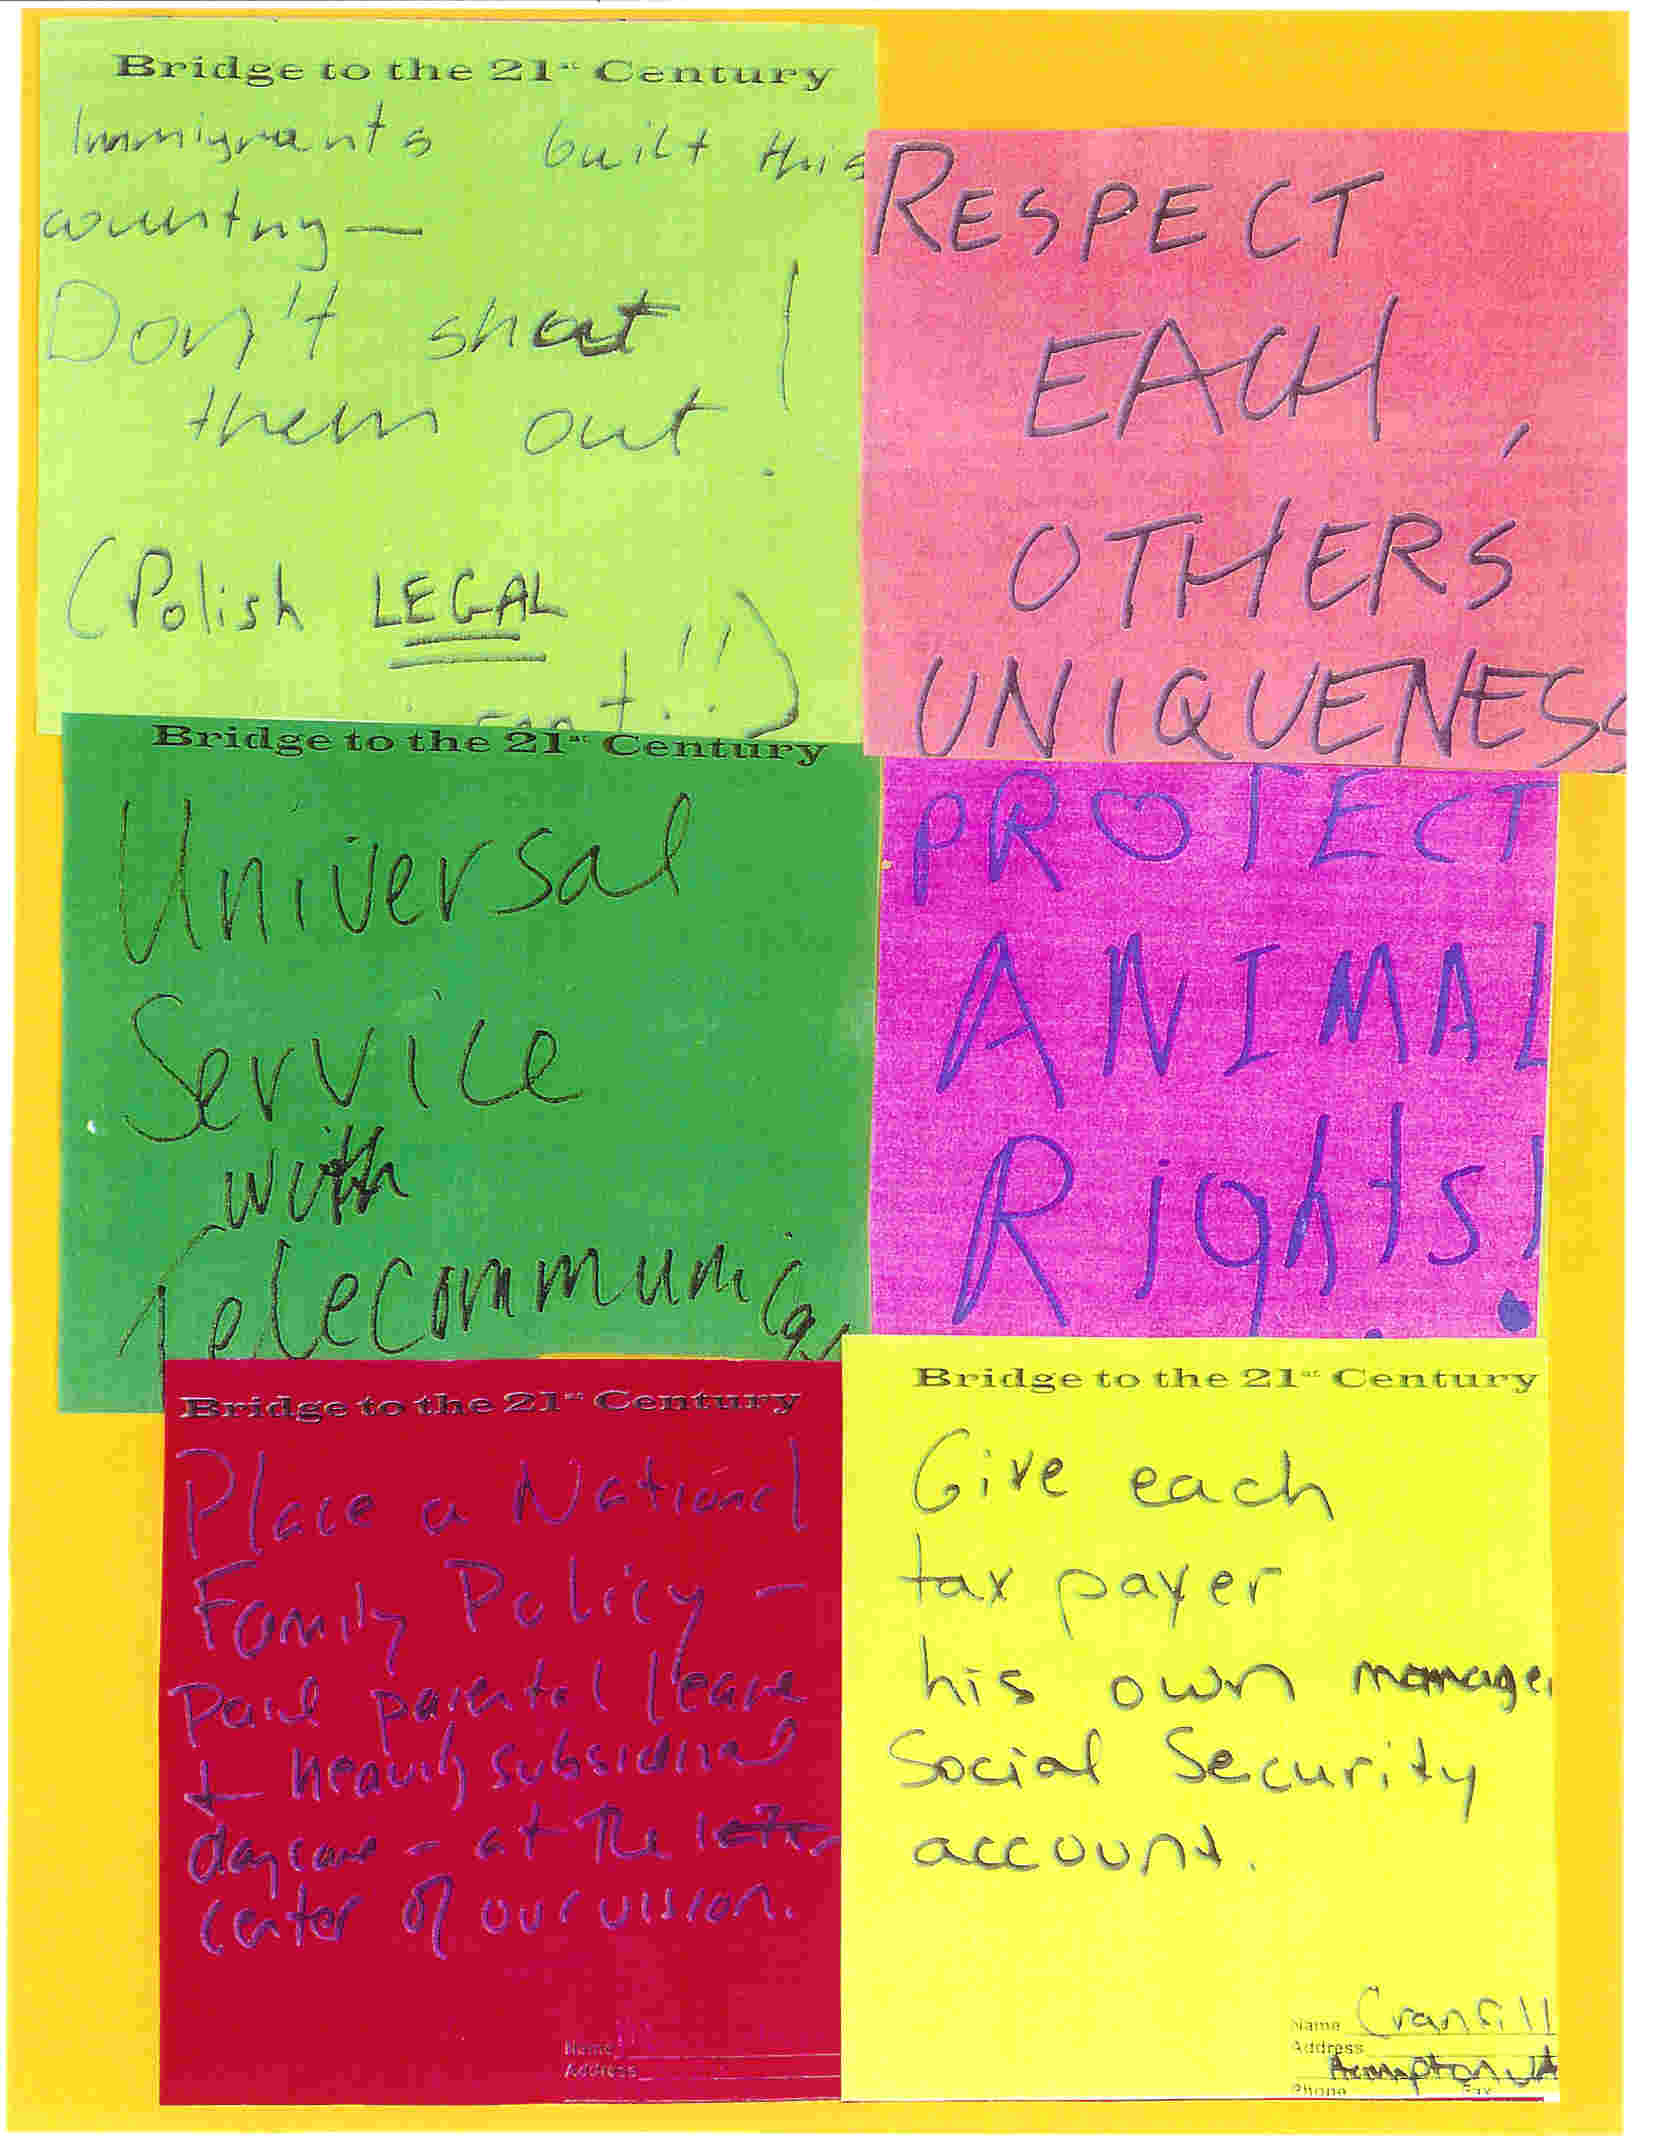 Bridge to the 21st Century
Immigrants built this
country —
Don't shut
them out!
(Polish LEGAL
!!)
RESPECT
EACH
OTHERS'
UNIQUENESS
Bridge to the 21st Century
Universal
Service
with
Telecommunica
PROTECT
ANIMAL
Rights!
Bridge to the 21st Century
Place a National
Family Policy -
paid parental leave
+ heavily subsidized
daycare - at the
center of our vision.
Name
Address
Bridge to the 21st Century
Give each
tax payer
his own manage
Social Security
account.
Name Cranfill
Address
Hampton VA
Phone Fax